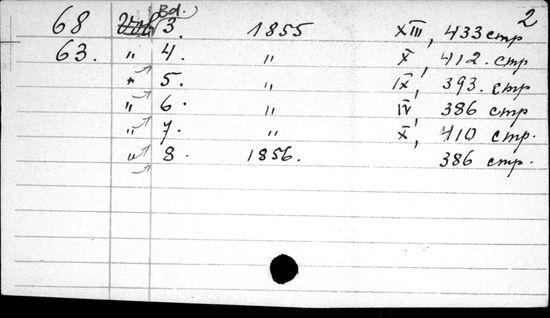 2
68 Bd. 3. 1855 XIII, 433 стр
63. " 4. " X, 412. стр
" 5. " IX, 393. стр
" 6. " IV, 386 стр
" 7. " X, 410 стр.
" 8. 1856. 386 стр.